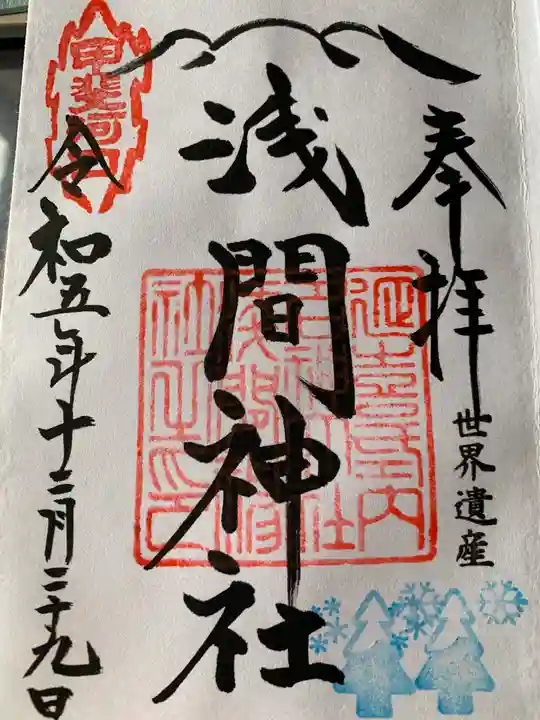 奉拝
世界遺産
浅間神社
甲斐河口
令和五年十二月二十九日